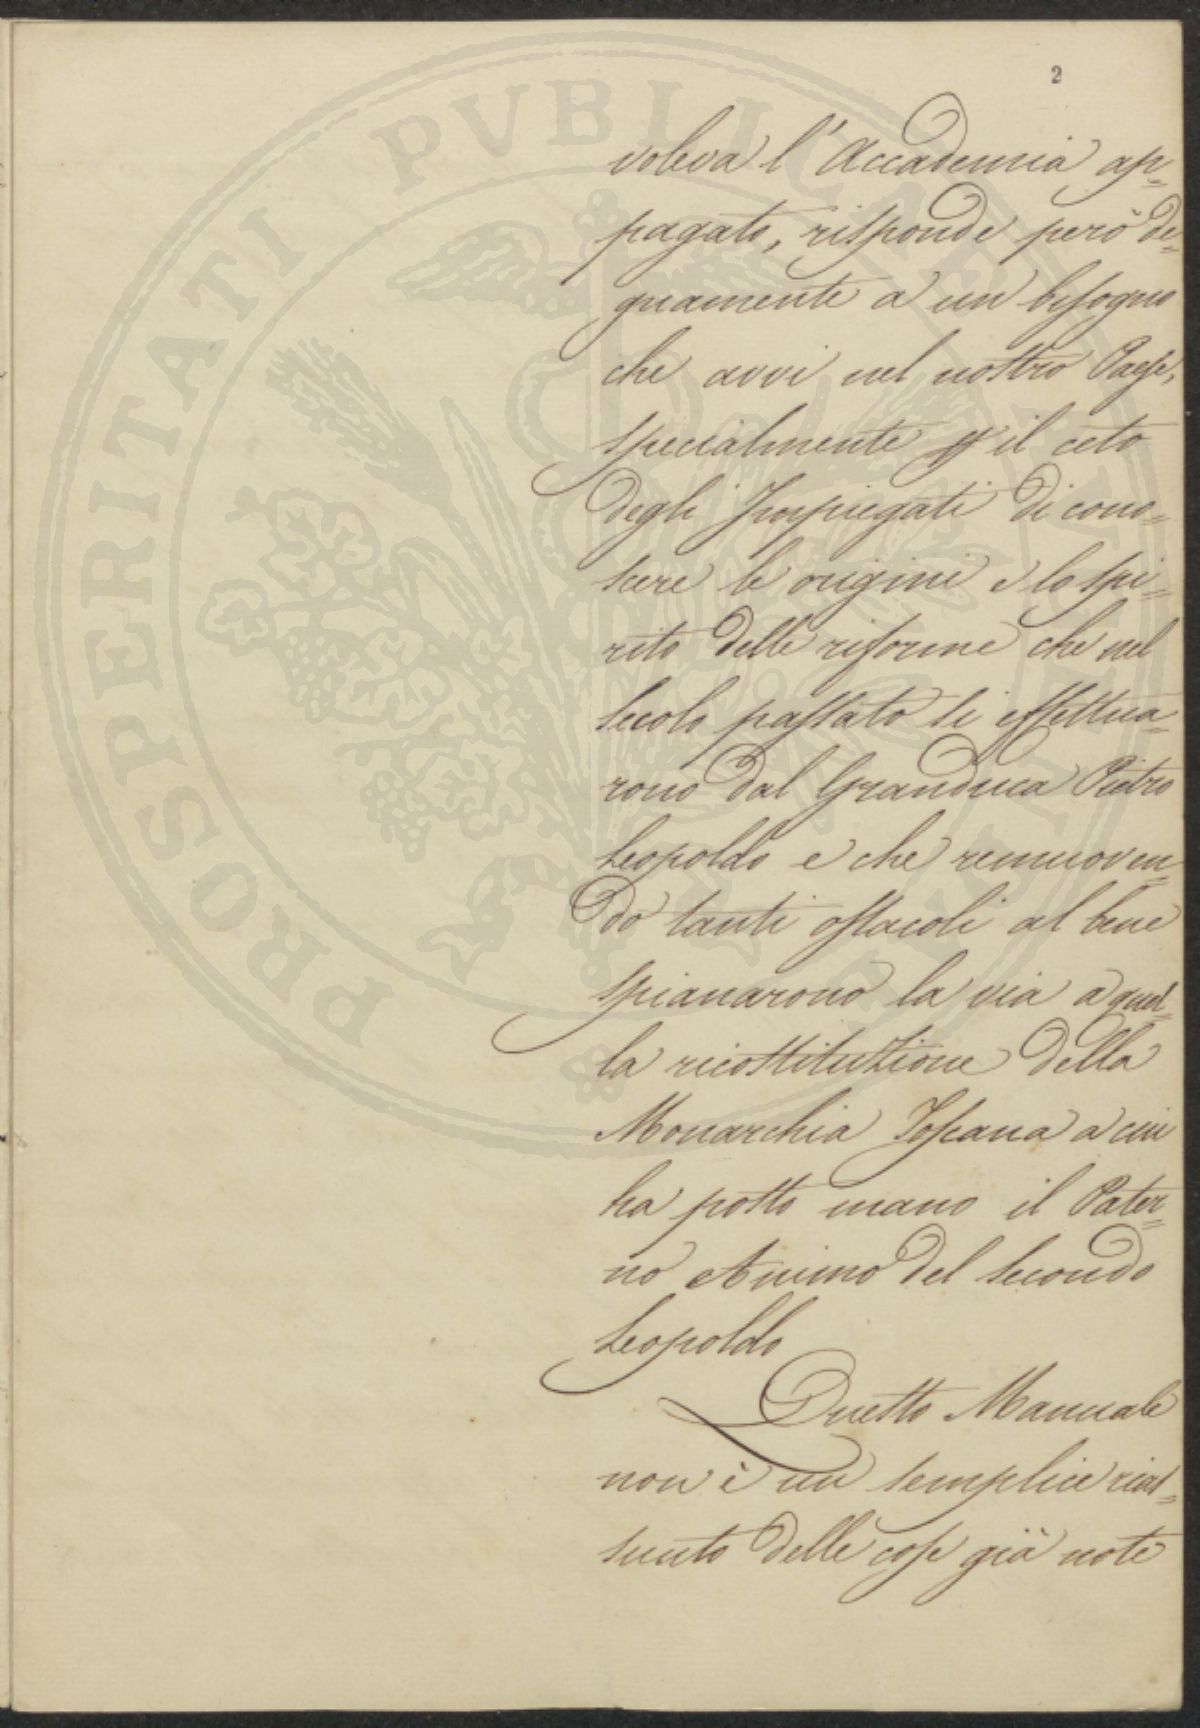 2
voleva l'Accademia ap=
pagato, risponde però de=
gnamente a un bisogno
che avvi nel nostro Paese,
specialmente pr il ceto
degli Impiegati di cono=
scere le origini e lo spi=
rito delle riforme che nel
secolo passato si effettua=
rono dal Granduca Pietro
Leopoldo e che rimuoven=
do tanti ostacoli al bene
spianarono la via a quel=
la ricostituzione della
Monarchia Toscana a cui
ha posto mano il Pater=
no Animo del secondo
Leopoldo
Questo Manuale
non è un semplice rias=
sunto delle cose già note
PROSPERITATI PVBLICAE